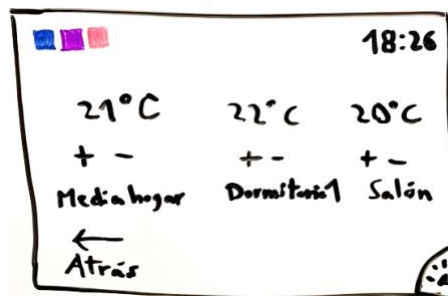 18:26
21°C 22°C 20°C
+ - + - + -
Media hogar Dormitorio 1 Salón
←
Atrás